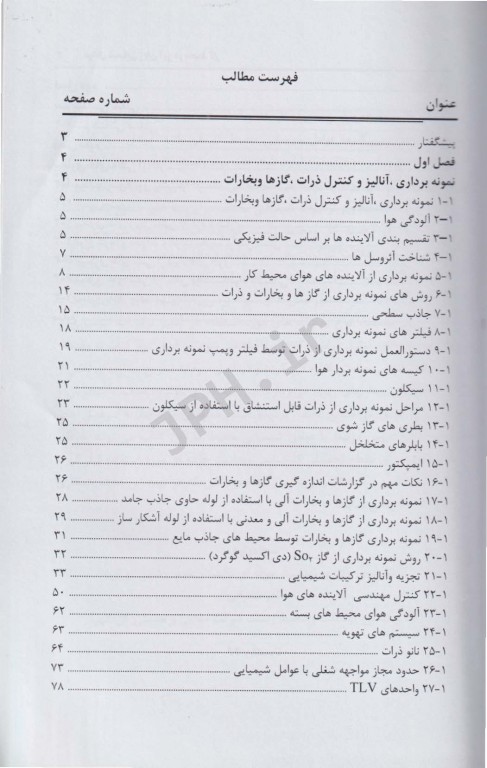 فهرست مطالب
عنوان شماره صفحه
پیشگفتار ۳
فصل اول ۴
نمونه برداری ،آنالیز و کنترل ذرات ،گازها وبخارات ۴
۱-۱ نمونه برداری ،آنالیز و کنترل ذرات ،گازها وبخارات ۵
۱-۲ آلودگی هوا ۵
۱-۳ تقسیم بندی آلاینده ها بر اساس حالت فیزیکی ۵
۱-۴ شناخت آئروسل ها ۷
۱-۵ نمونه برداری از آلاینده های هوای محیط کار ۸
۱-۶ روش های نمونه برداری از گاز ها و بخارات و ذرات ۱۴
۱-۷ جاذب سطحی ۱۵
۱-۸ فیلتر های نمونه برداری ۱۸
۱-۹ دستورالعمل نمونه برداری از ذرات توسط فیلتر وپمپ نمونه برداری ۱۹
۱-۱۰ کیسه های نمونه بردار هوا ۲۱
۱-۱۱ سیکلون ۲۲
۱-۱۲ مراحل نمونه برداری از ذرات قابل استنشاق با استفاده از سیکلون ۲۳
۱-۱۳ بطری های گاز شوی ۲۵
۱-۱۴ بابلرهای متخلخل ۲۵
۱-۱۵ ایمپکتور ۲۶
۱-۱۶ نکات مهم در گزارشات اندازه گیری گازها و بخارات ۲۶
۱-۱۷ نمونه برداری از گازها و بخارات آلی با استفاده از لوله حاوی جاذب جامد ۲۸
۱-۱۸ نمونه برداری از گازها و بخارات آلی و معدنی با استفاده از لوله آشکار ساز ۲۹
۱-۱۹ نمونه برداری گازها و بخارات توسط محیط های جاذب مایع ۳۱
۱-۲۰ روش نمونه برداری از گاز So۲ (دی اکسید گوگرد) ۳۲
۱-۲۱ تجزیه وآنالیز ترکیبات شیمیایی ۳۳
۱-۲۲ کنترل مهندسی آلاینده های هوا ۵۰
۱-۲۳ آلودگی هوای محیط های بسته ۶۲
۱-۲۴ سیستم های تهویه ۶۳
۱-۲۵ نانو ذرات ۶۴
۱-۲۶ حدود مجاز مواجهه شغلی با عوامل شیمیایی ۷۳
۱-۲۷ واحدهای TLV ۷۸
JPH.ir